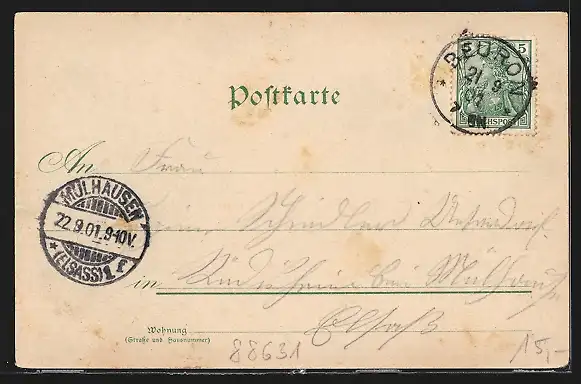 5
BEURON
21 9
REICHSPOST
Postkarte
An Frau
MÜLHAUSEN
22.9.01.9-10V.
* (ELSASS) 1 f
Schindler
in bei Mülhausen
Elsaß
Wohnung
(Straße und Hausnummer)
88631
15,-